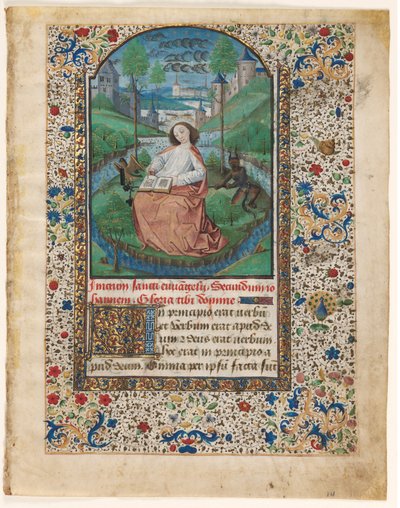 Inicium sancti euuangelij. Secundum io
hannem. Gloria tibi domine
In principio erat uerbu
et uerbum erat apud de
um et deus erat uerbum
hoc erat in principio a
pud deum. Omnia per ipsu facta sut